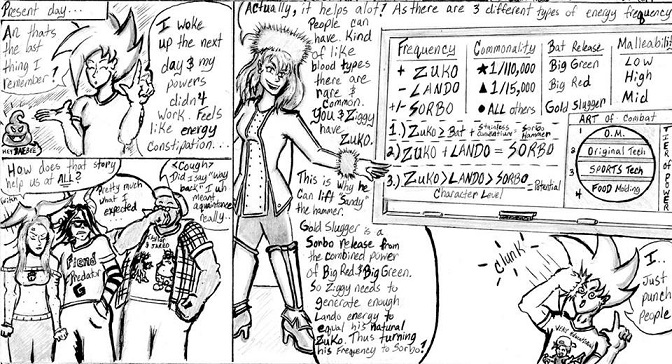 Present day...
An thats
the last
thing I
remember!
I woke
up the next
day & my
powers
didn't
work. Feels
like energy
Constipation...
HEY BAEBEE
How does that story
help us at ALL?
Pretty much
what I
expected
<Cough>
Did I say "way
back" I uh
mean
aquaintance
really...
FIEND
Predator
G
Actually, it helps alot! As there are 3 different types of energy frequency
People can
have. Kind
of like
blood types
there are
rare &
Common.
You & Ziggy
have
ZUKO.
This is Why he
Can lift "Sandy"
the hammer.
Gold Slugger is a
Sorbo release from
the combined power
of Big Red & Big Green.
So Ziggy needs to
generate enough
Lando energy to
equal his natural
Zuko. Thus turning
his Frequency to Sorbo!
Frequency Commonality Bat Release Malleability
+ ZUKO ★1/110,000 Big Green Low
- LANDO ▲1/15,000 Big Red High
+/- SORBO ●ALL others Gold Slugger Mid
1.) ZUKO ≥ Bat + Sorbo Hammer
2.) ZUKO + LANDO = SORBO
3.) ZUKO > LANDO > SORBO = Potential
Character Level
ART of Combat
1 O.M.
2 Original Tech
3 SPORTS Tech
4 FOOD Molding
OF POWER
Clunk
I..
Just
punch
People